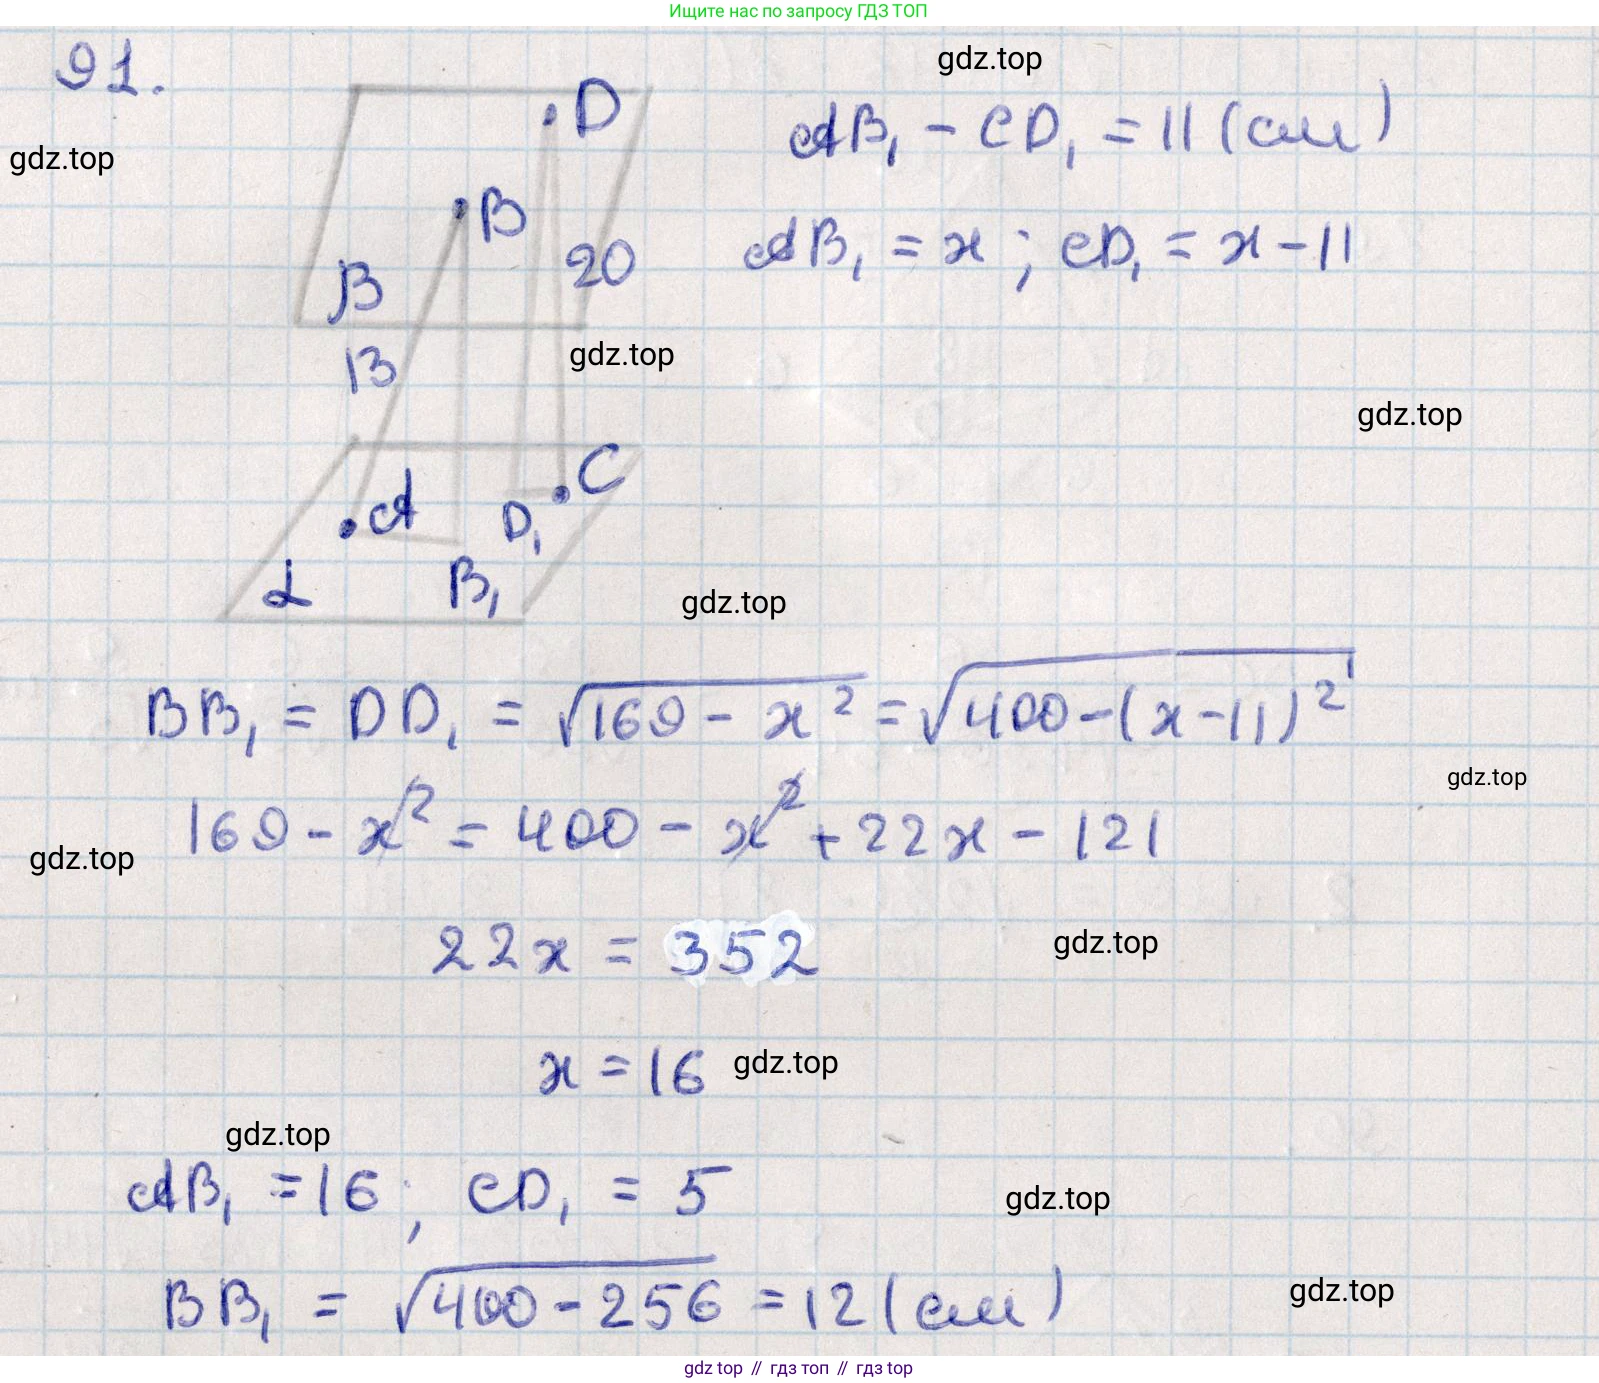 Ищите нас по запросу ГДЗ ТОП
91.
gdz.top
gdz.top
D
B
β
20
13
gdz.top
AB₁ - CD₁ = 11 (см)
AB₁ = x ; CD₁ = x - 11
gdz.top
C
A
D₁
α
B₁
gdz.top
BB₁ = DD₁ = √169 - x² = √400 - (x - 11)²
gdz.top
169 - x² = 400 - x² + 22x - 121
gdz.top
22x = 352
gdz.top
x = 16
gdz.top
gdz.top
AB₁ = 16; CD₁ = 5
gdz.top
BB₁ = √400 - 256 = 12 (см)
gdz.top
gdz top // гдз топ // гдз top